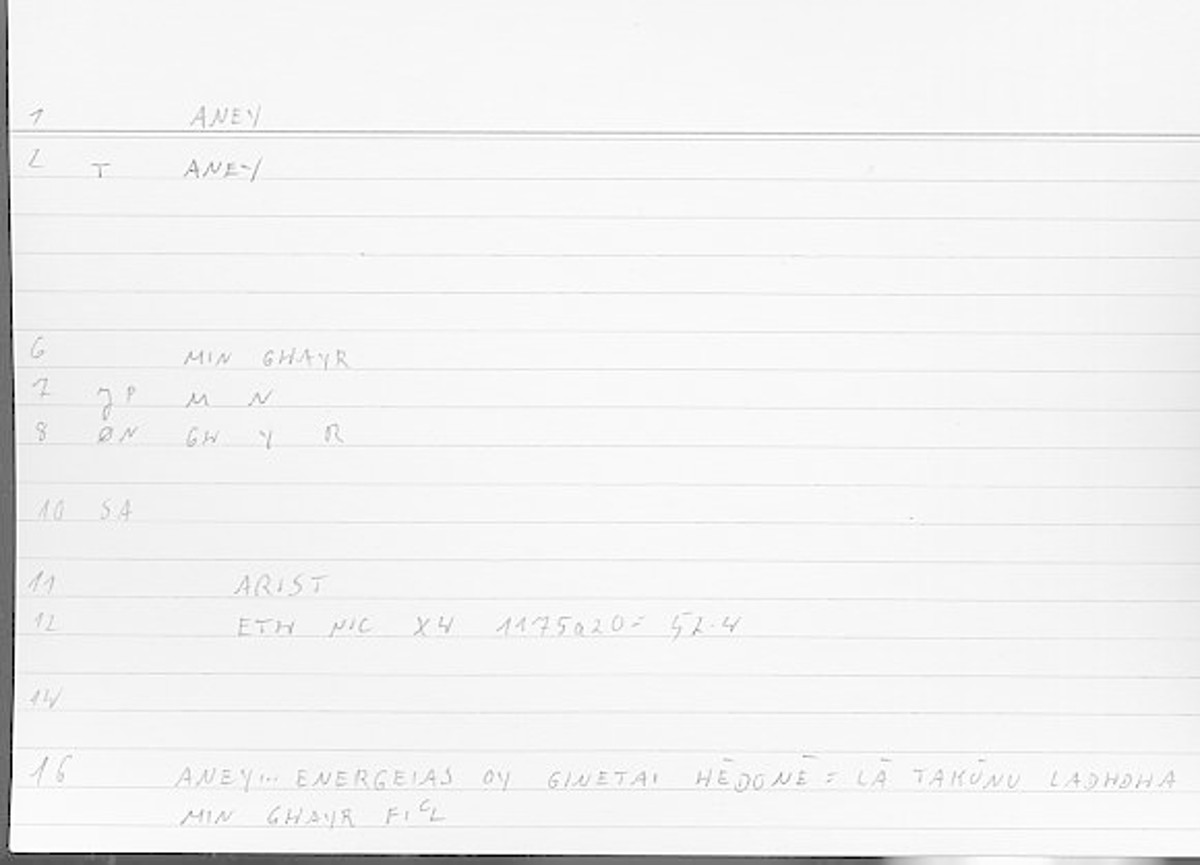 1 ANEY
2 T ANEY
6 MIN GHAYR
7 JP M N
8 ØN GH Y R
10 SA
11 ARIST
12 ETH NIC X4 1175a20= 52.4
14
16 ANEY... ENERGEIAS OY GINETAI HĒDONĒ = LĀ TAKŪNU LADHDHA
MIN GHAYR FIᶜL